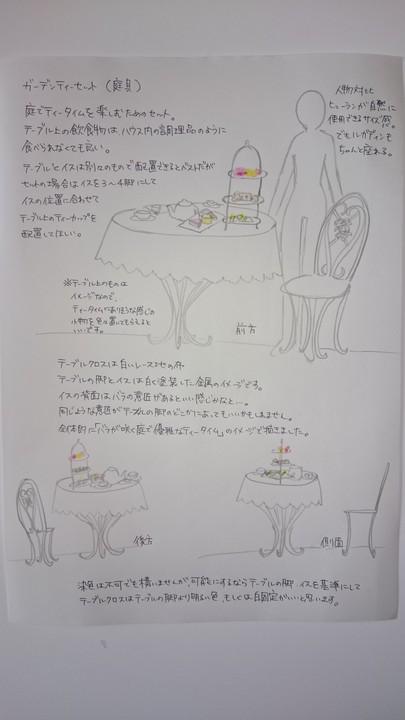 ガーデンティーセット（庭具）
庭でティータイムを楽しむためのセット。
テーブル上の飲食物は、ハウス内の調理品のように
食べられなくても良い。
テーブルとイスは別々のもので配置できるとベストだが
セットの場合はイスを3〜4脚にして
イスの位置に合わせて
テーブル上のティーカップを
配置してほしい。
人物対比
ヒューランが自然に
使用できるサイズ感。
でもルガディンも
ちゃんと座れる。
※テーブル上のものは
イメージなので、
ティータイムでありそうな感じの
小物を色々置いてもらえると
いいです。
前方
テーブルクロスは白いレース地の布
テーブルの脚とイスは白く塗装した金属のイメージです。
イスの背面はバラの意匠があるといい感じかなと…。
同じような意匠がテーブルの脚のどこかにあってもいいかもしれません。
全体的に「バラが咲く庭で優雅なティータイム」のイメージで描きました。
後方
側面
染色は不可でも構いませんが、可能にするならテーブルの脚、イスを基準にして
テーブルクロスはテーブルの脚より明るい色、もしくは白固定がいいと思います。